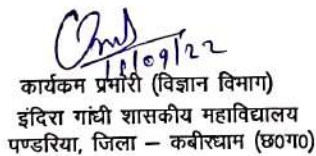 11/09/22
कार्यकम प्रभारी (विज्ञान विभाग)
इंदिरा गांधी शासकीय महाविद्यालय
पण्डरिया, जिला – कबीरधाम (छ0ग0)